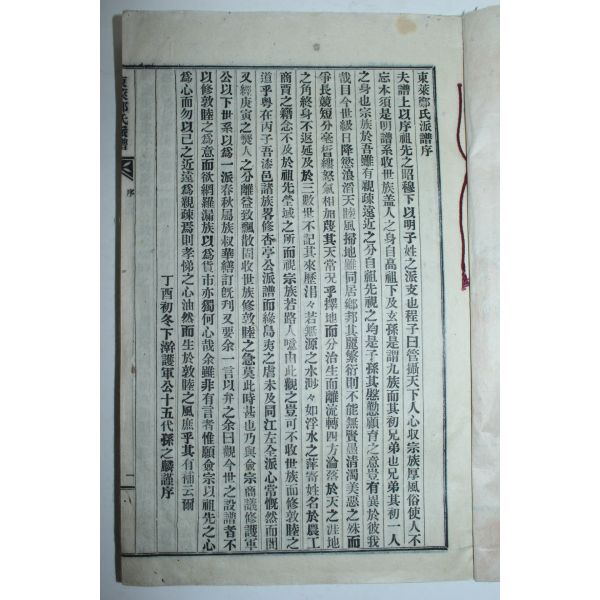 東萊鄭氏派譜序
夫譜上以序祖先之昭穆下以明子姓之派支也程子曰管攝天下人心収宗族厚風俗使人不
忘本須是明譜系收世族盖人之身自高祖下及玄孫是謂九族而其初兄弟也兄弟其初一人
之身也宗族於吾雖有親疎遠近之分自祖先視之均是子孫其慇懃顧育之意豈有異於彼我
哉目今世級日降慾浪滔天睦風掃地雖同居鄕邦其麗繁衍則不能無賢愚清濁美惡之殊而
爭長競短分毫析縷怒氣相加蔑其天常况乎擇地而分治生而離流轉四方論落於天之涯地
之角終身不返延及於三數世不記其來歷涓々若無源之水渺々如浮水之萍寄姓名於農工
商賈之籍念不及於祖先塋域之所而視宗族若路人噫由此觀之豈可不收世族而修敦睦之
道乎粤在丙子吾漆邑諸族畧修杏亭公派譜而緣島夷之虐未及同江左全派心常慨然而間
又經庚寅之㷠人之分離益致飄散固收世族修敦睦之急莫此時甚也乃與僉宗商議修護軍
公以下世系以爲一派春秋屬族叔華繕訂旣刋又要余一言以弁之余曰觀今世之設譜者不
以修敦睦之爲意而欲網羅漏族以爲貨市亦獨何心哉余雖非有言者惟願僉宗以祖先之心
爲心而勿以己之近遠爲親疎焉則孝悌之心油然而生於敦睦之風庶乎其有補云爾
丁酉初冬下澣護軍公十五代孫之麟謹序
東萊鄭氏派譜
序
一